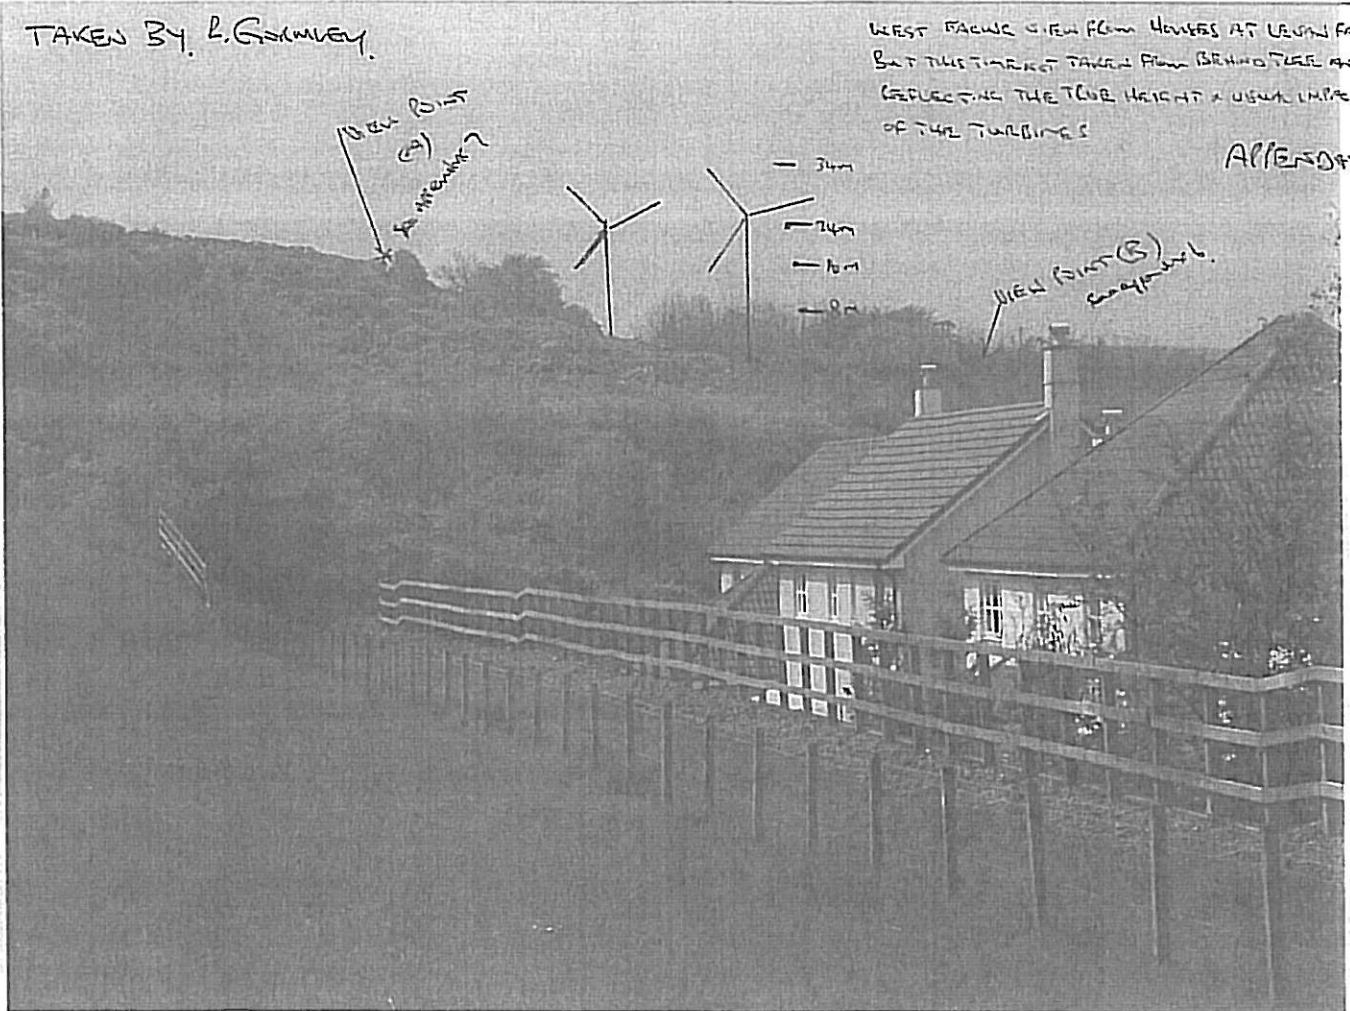 TAKEN BY. R. GORMLEY.
WEST FACING VIEW FROM HOUSES AT LEVAN FA
BUT THIS TIME NOT TAKEN FROM BEHIND TREE AN
REFLECTING THE TRUE HEIGHT & VISUAL IMPAC
OF THE TURBINES
APPENDI
VIEW POINT
(A)
SEE APPENDIX 7
34m
24m
16m
8m
VIEW POINT (B)